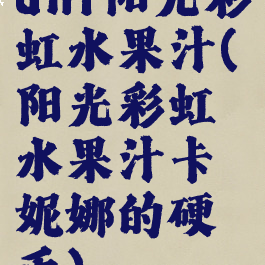 阳光彩
虹水果汁(
阳光彩虹
水果汁卡
妮娜的硬
币)